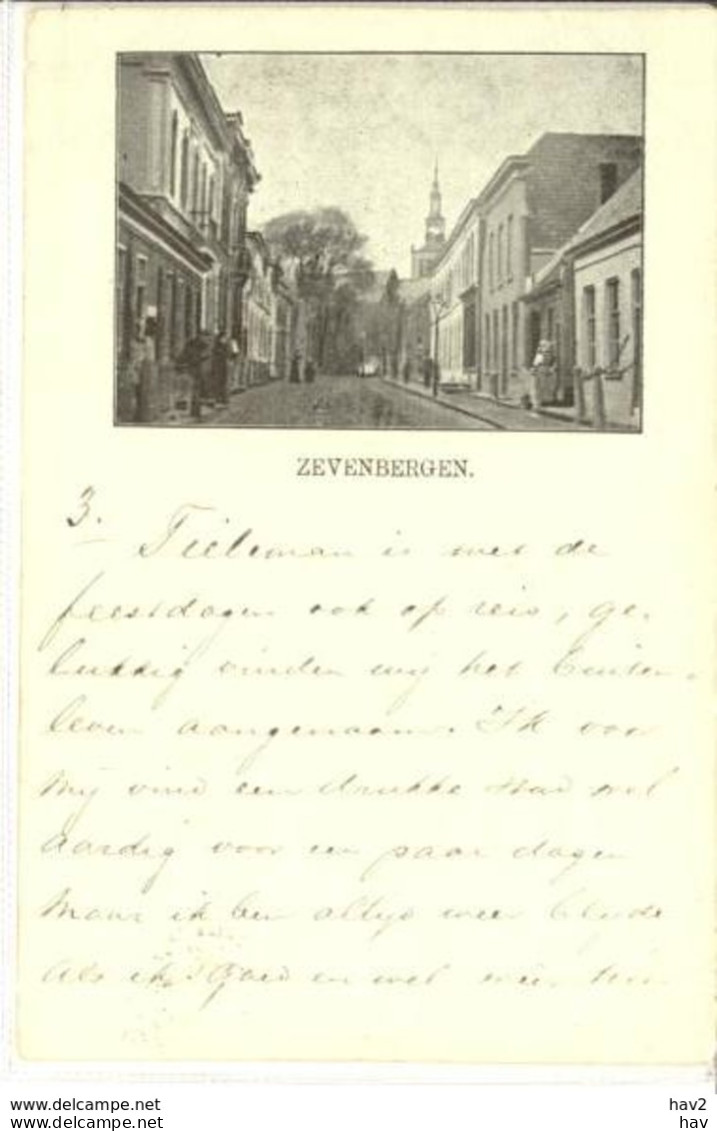 ZEVENBERGEN.
3.
Tieleman is met de
feestdagen ook op reis, ge-
lukkig vinden wij het buiten-
leven aangenaam. Ik voor
mij vind een drukke stad wel
aardig voor een paar dagen
Maar ik ben altijd weer blyde
als ik goed en wel weer
www.delcampe.net hav2
www.delcampe.net hav